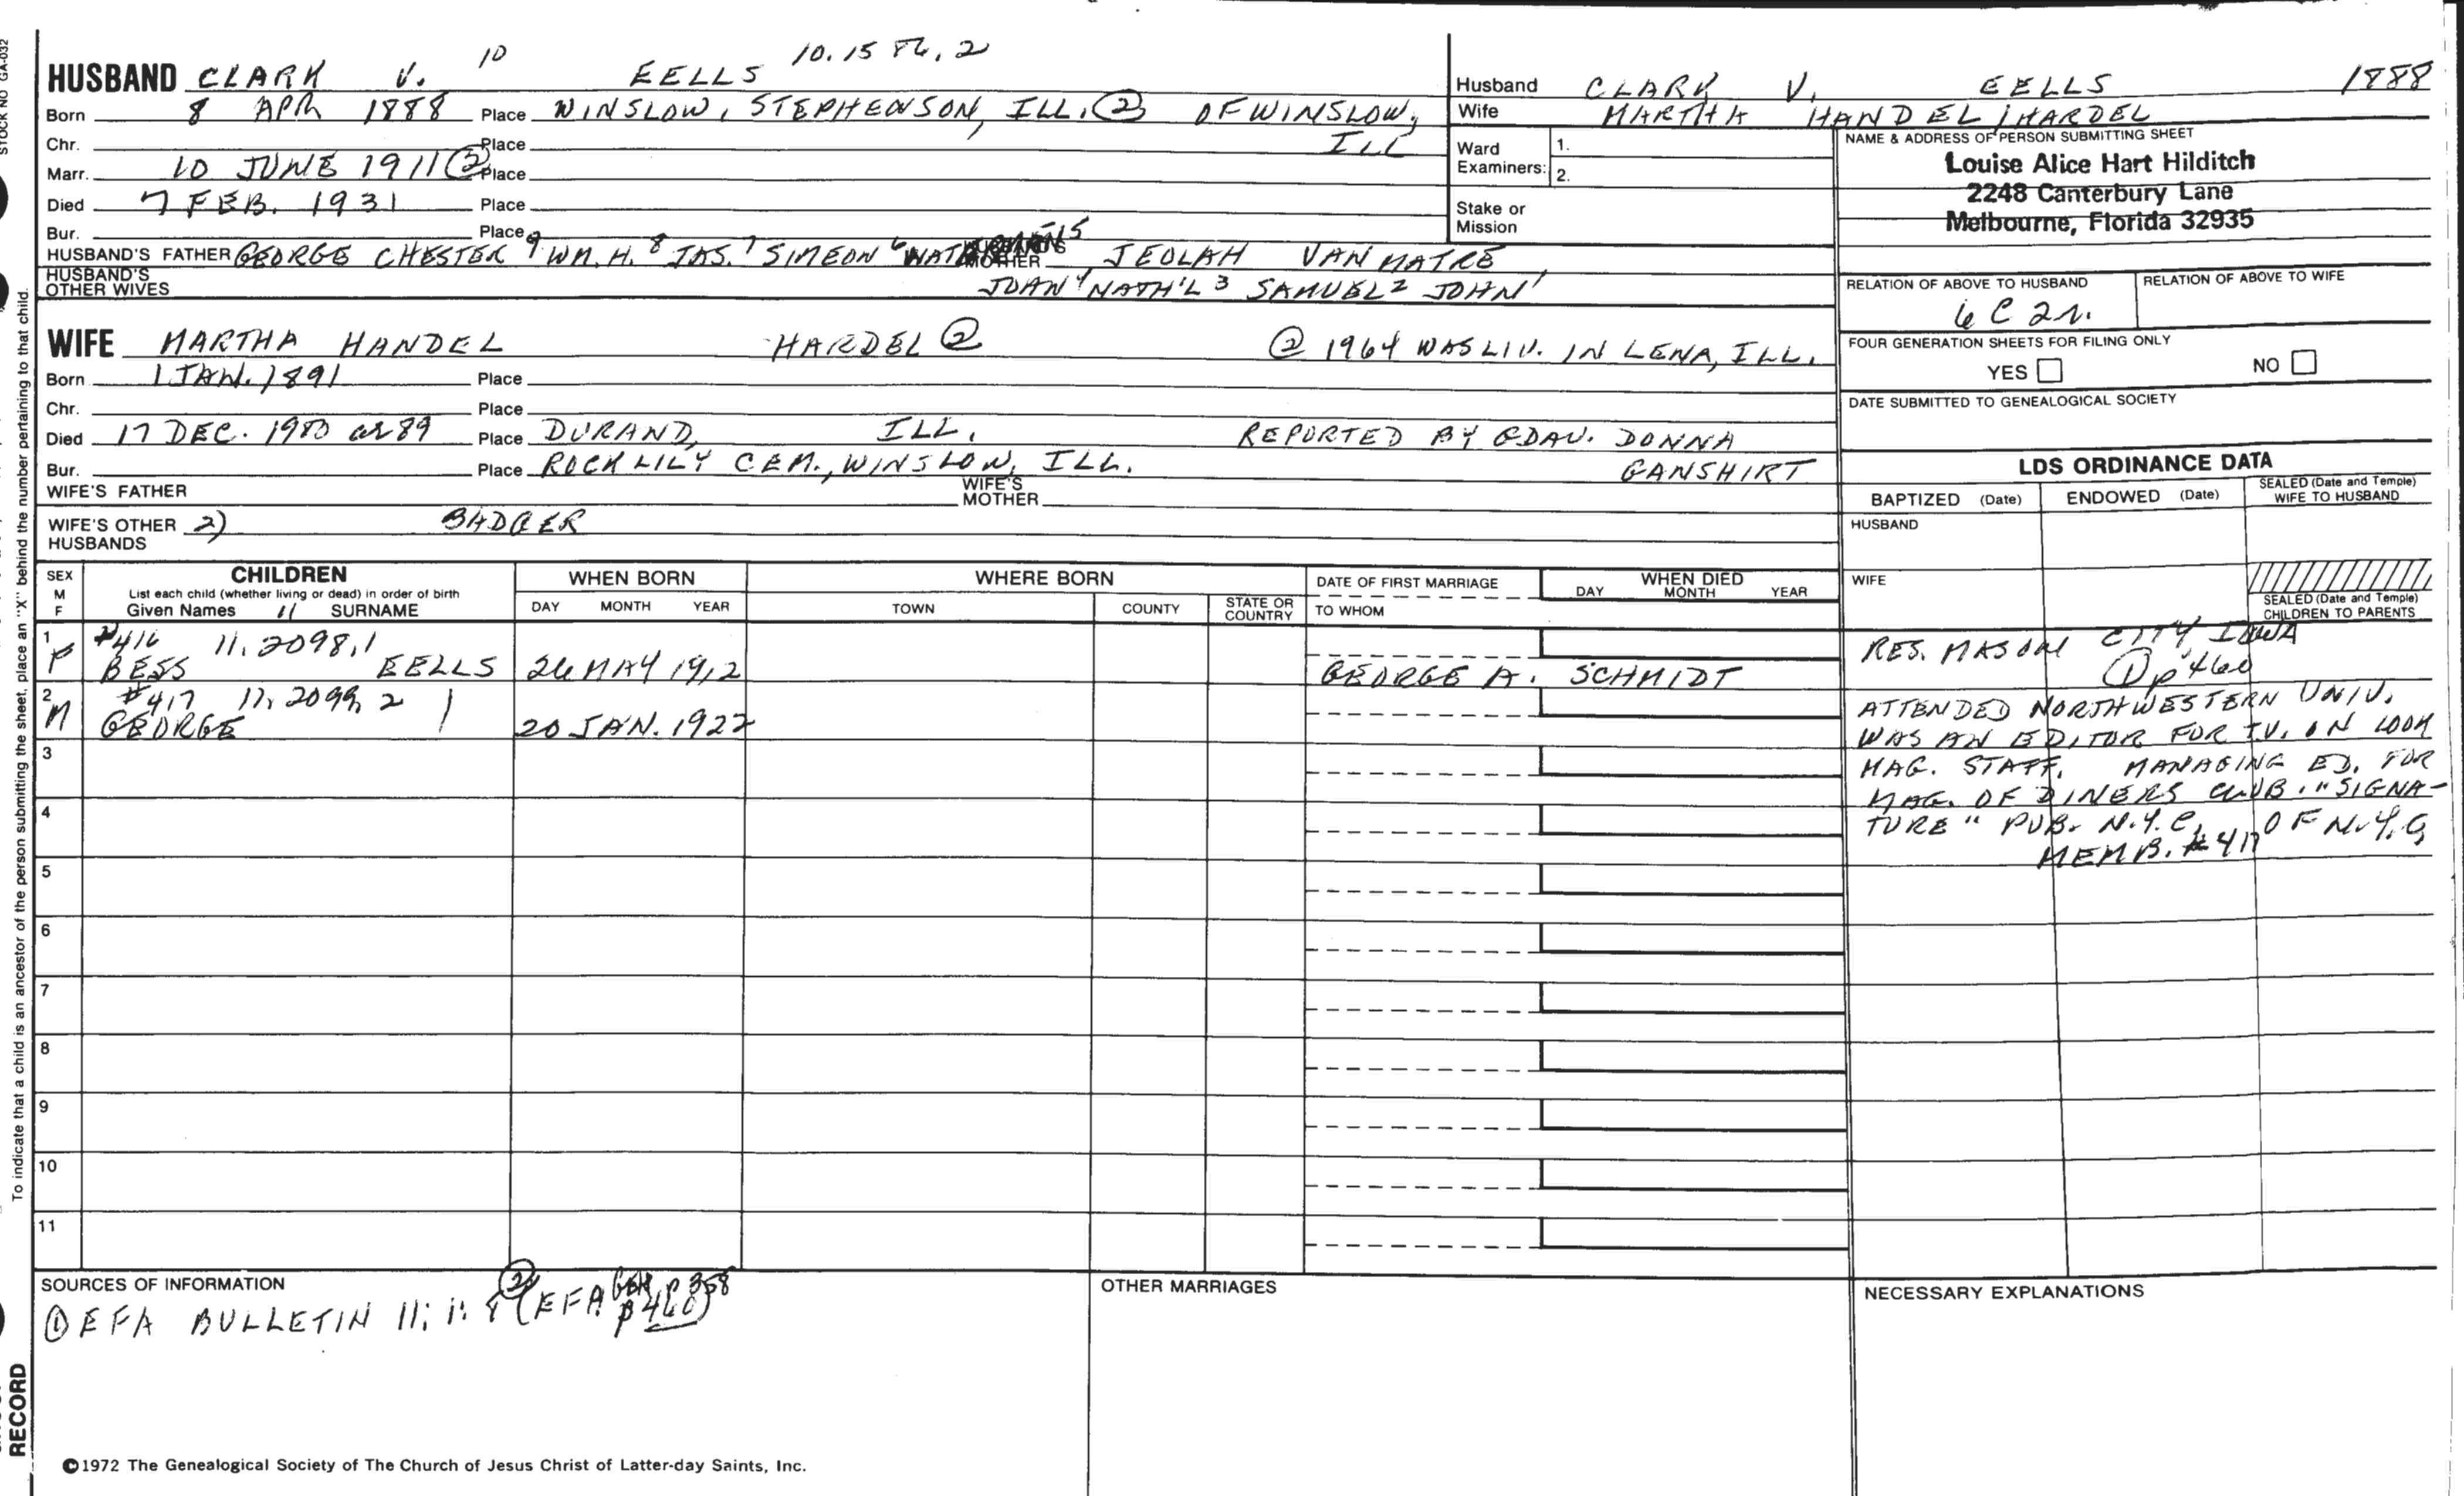 STOCK NO GA-032
10 10.15
HUSBAND CLARK V. EELLS
Born 8 APR 1888 Place WINSLOW, STEPHENSON, ILL. ② OF WINSLOW,
Chr. Place ILL
Marr. 10 JUNE 1911 ② Place
Died 7 FEB. 1931 Place
Bur. Place
HUSBAND'S FATHER GEORGE CHESTER 9 WM. H. 8 JAS. 7 SIMEON 6 MOTHER JEOLAH VAN MATRE
HUSBAND'S OTHER WIVES JOHN 4 NATH'L 3 SAMUEL 2 JOHN 1
WIFE MARTHA HANDEL HARDEL ② ② 1964 WAS LIV. IN LENA, ILL.
Born 1 JAN. 1891 Place
Chr. Place
Died 17 DEC. 1980 at 89 Place DURAND, ILL. REPORTED BY GDAU. DONNA
Bur. Place ROCK LILY CEM., WINSLOW, ILL. GANSHIRT
WIFE'S FATHER WIFE'S MOTHER
WIFE'S OTHER HUSBANDS 2) BADGER
Husband CLARK V. EELLS 1888
Wife MARTHA HANDEL/HARDEL
Ward Examiners: 1.
2.
Stake or Mission
NAME & ADDRESS OF PERSON SUBMITTING SHEET
Louise Alice Hart Hilditch
2248 Canterbury Lane
Melbourne, Florida 32935
RELATION OF ABOVE TO HUSBAND RELATION OF ABOVE TO WIFE
6 C 2 r.
FOUR GENERATION SHEETS FOR FILING ONLY
YES NO
DATE SUBMITTED TO GENEALOGICAL SOCIETY
LDS ORDINANCE DATA
BAPTIZED (Date) ENDOWED (Date) SEALED (Date and Temple) WIFE TO HUSBAND
HUSBAND
WIFE
SEALED (Date and Temple)
CHILDREN TO PARENTS
SEX M F CHILDREN WHEN BORN WHERE BORN DATE OF FIRST MARRIAGE WHEN DIED
List each child (whether living or dead) in order of birth
Given Names 11 SURNAME DAY MONTH YEAR TOWN COUNTY STATE OR COUNTRY TO WHOM DAY MONTH YEAR
1 #416 11.2098.1
F BESS EELLS 26 MAY 1912 GEORGE A. SCHMIDT
RES. MASON CITY IOWA
① p 460
2 #417 11.2099.2
M GEORGE 20 JAN. 1922
ATTENDED NORTHWESTERN UNIV.
WAS AN EDITOR FOR T.V. ON LOOK
MAG. STAFF. MANAGING ED. FOR
MAG. OF DINERS CLUB. "SIGNA-
TURE" PUB. N.Y.C. OF N.Y.C.
MEMB. #417
3
4
5
6
7
8
9
10
11
SOURCES OF INFORMATION
① EFA BULLETIN 11: 1: 8 ② (EFA GEN p 358
p 460)
OTHER MARRIAGES
NECESSARY EXPLANATIONS
©1972 The Genealogical Society of The Church of Jesus Christ of Latter-day Saints, Inc.
To indicate that a child is an ancestor of the person submitting the sheet, place an "X" behind the number pertaining to that child.
RECORD